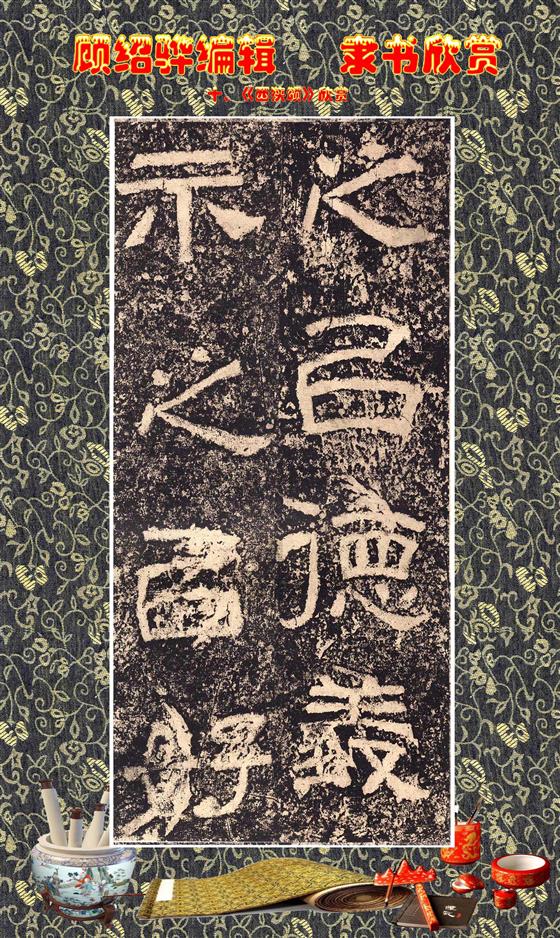 顾绍骅编辑 隶书欣赏
十、《西狭颂》欣赏
之㠯德義
示之㠯好